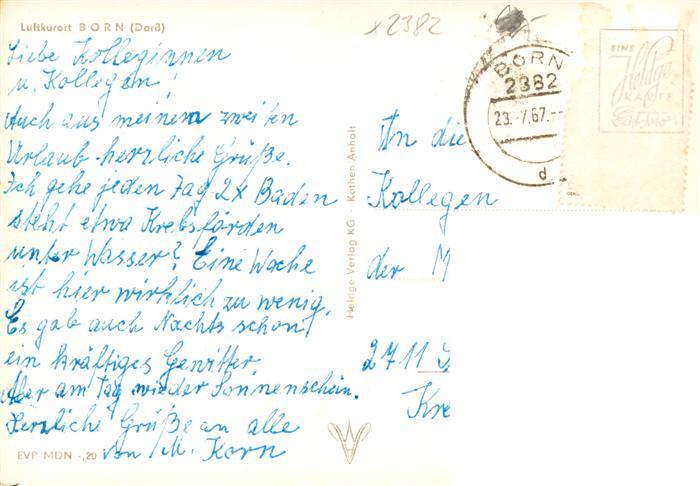 Luftkurort BORN (Darß)
x 2382
Liebe Kolleginnen
u. Kollegen!
Auch aus meinem zweiten
Urlaub herzliche Grüße.
Ich gehe jeden Tag 2x Baden
steht etwa Krebsförden
unter Wasser? Eine Woche
ist hier wirklich zu wenig.
Es gab auch Nachts schon
ein kräftiges Gewitter.
Aber am Tag wieder Sonnenschein.
Herzliche Grüße an alle
von M. Korn
EVP MDN -,20
Heldge-Verlag KG · Köthen Anhalt
BORN
2382
23.-7.67.--
d
EINE
Heldge
KARTE
Echt Foto
An die
Kollegen
der M
2711
Kre